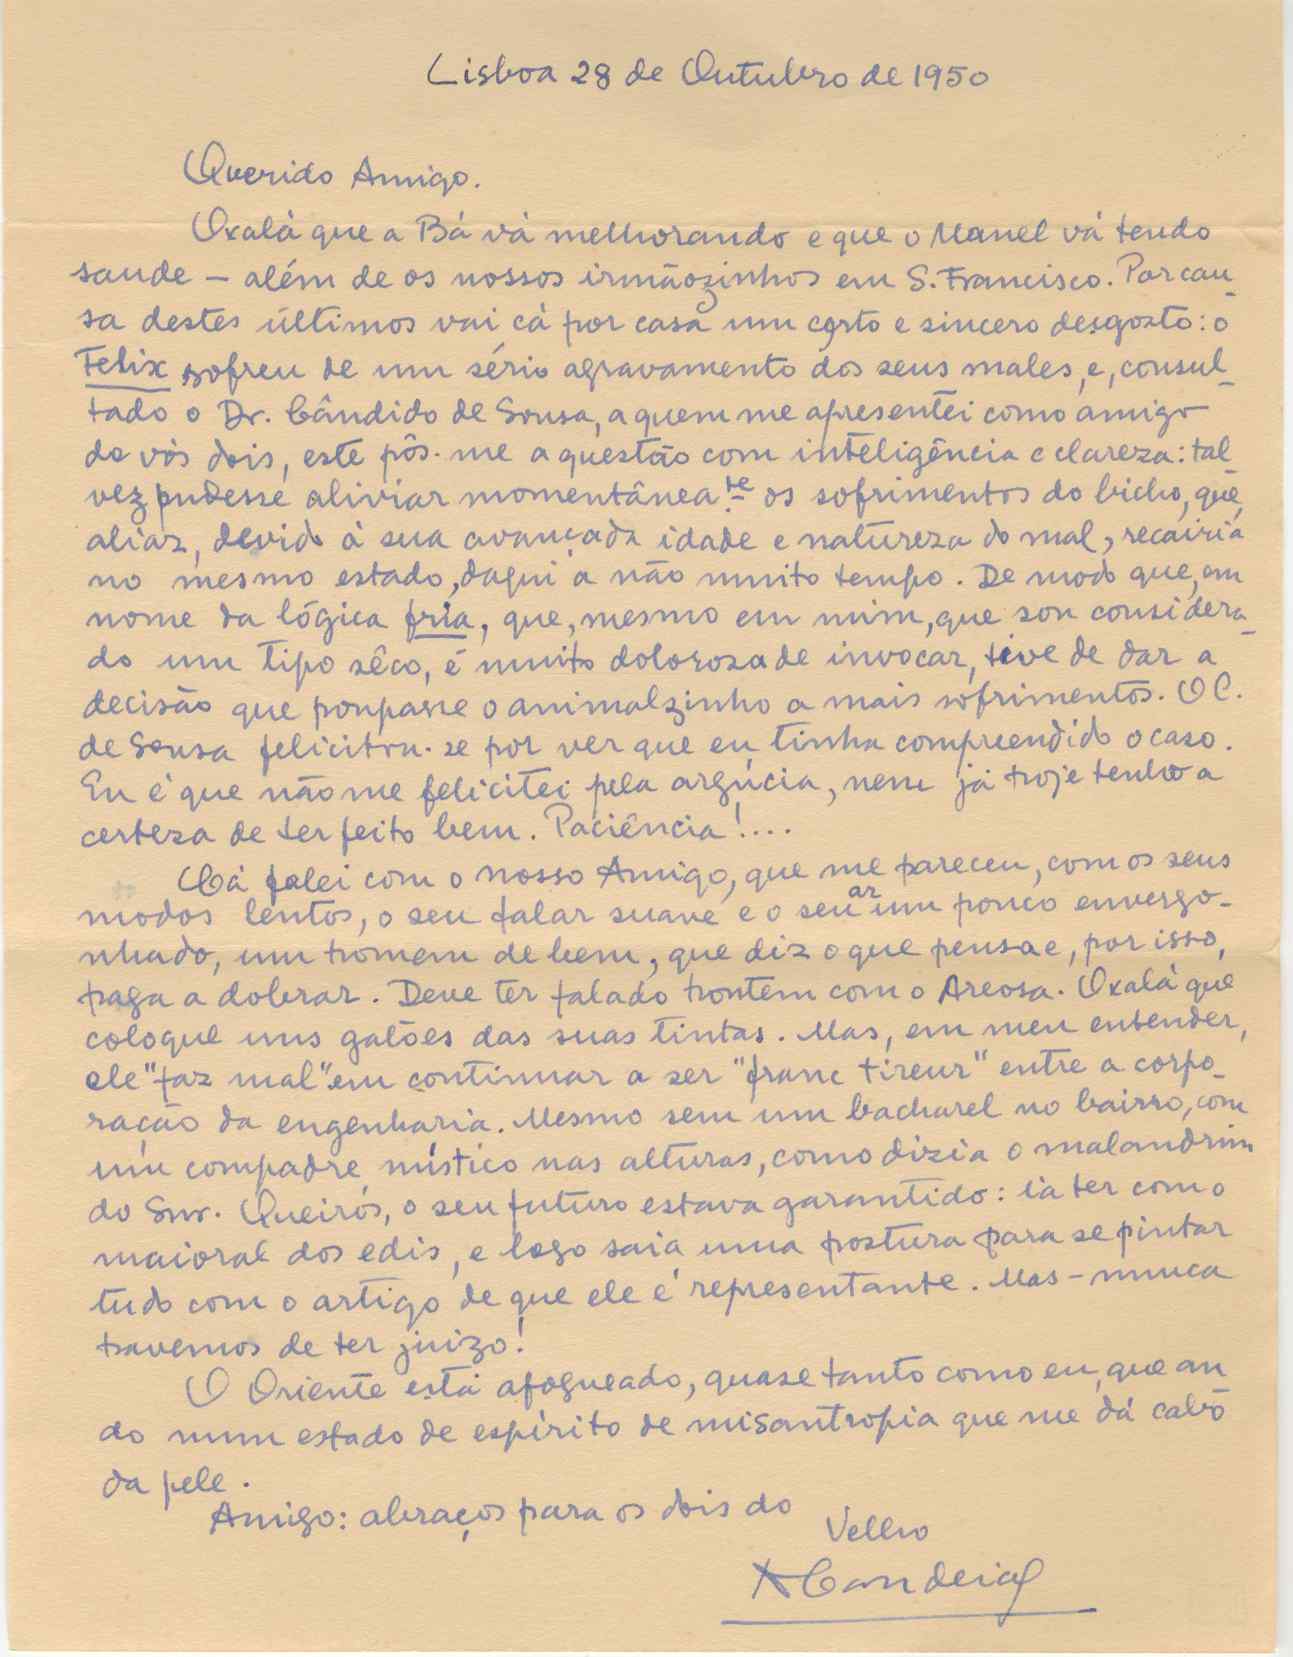 Lisboa 28 de Outubro de 1950
Querido Amigo.
Oxalá que a Bá vá melhorando e que o Manel vá tendo
saude – além de os nossos irmãozinhos em S. Francisco. Por cau-
sa destes últimos vai cá por casa um certo e sincero desgosto: o
Felix sofreu de um sério agravamento dos seus males, e, consul-
tado o Dr. Cândido de Sousa, a quem me apresentei como amigo
de vós dois, este pôs-me a questão com inteligência e clareza: tal-
vez pudesse aliviar momentânea.te os sofrimentos do bicho, que,
aliaz, devido à sua avançada idade e natureza do mal, recairia
no mesmo estado, daqui a não muito tempo. De modo que, em
nome da lógica fria, que, mesmo em mim, que sou considera-
do um tipo sêco, é muito dolorosa de invocar, tive de dar a
decisão que poupasse o animalzinho a mais sofrimentos. O C.
de Sousa felicitou-se por ver que eu tinha compreendido o caso.
Eu é que não me felicitei pela argúcia, nem já hoje tenho a
certeza de ter feito bem. Paciência!...
Cá falei com o nosso Amigo, que me pareceu, com os seus
modos lentos, o seu falar suave e o seu ar um pouco envergo-
nhado, um homem de bem, que diz o que pensa e, por isso,
paga a dobrar. Deve ter falado hontem com o Areosa. Oxalá que
coloque uns galões das suas tintas. Mas, em meu entender,
ele "faz mal" em continuar a ser "franc tireur" entre a corpo-
ração da engenharia. Mesmo sem um bacharel no bairro, com
um compadre místico nas alturas, como dizia o malandrim
do Snr. Queirós, o seu futuro estava garantido: ia ter com o
maioral dos edis, e logo saia uma postura para se pintar
tudo com o artigo de que ele é representante. Mas – nunca
havemos de ter juizo!
O Oriente está afogueado, quase tanto como eu, que an-
do num estado de espírito de misantropia que me dá cabo
da pele.
Amigo: abraços para os dois do
Velho
A Candeias